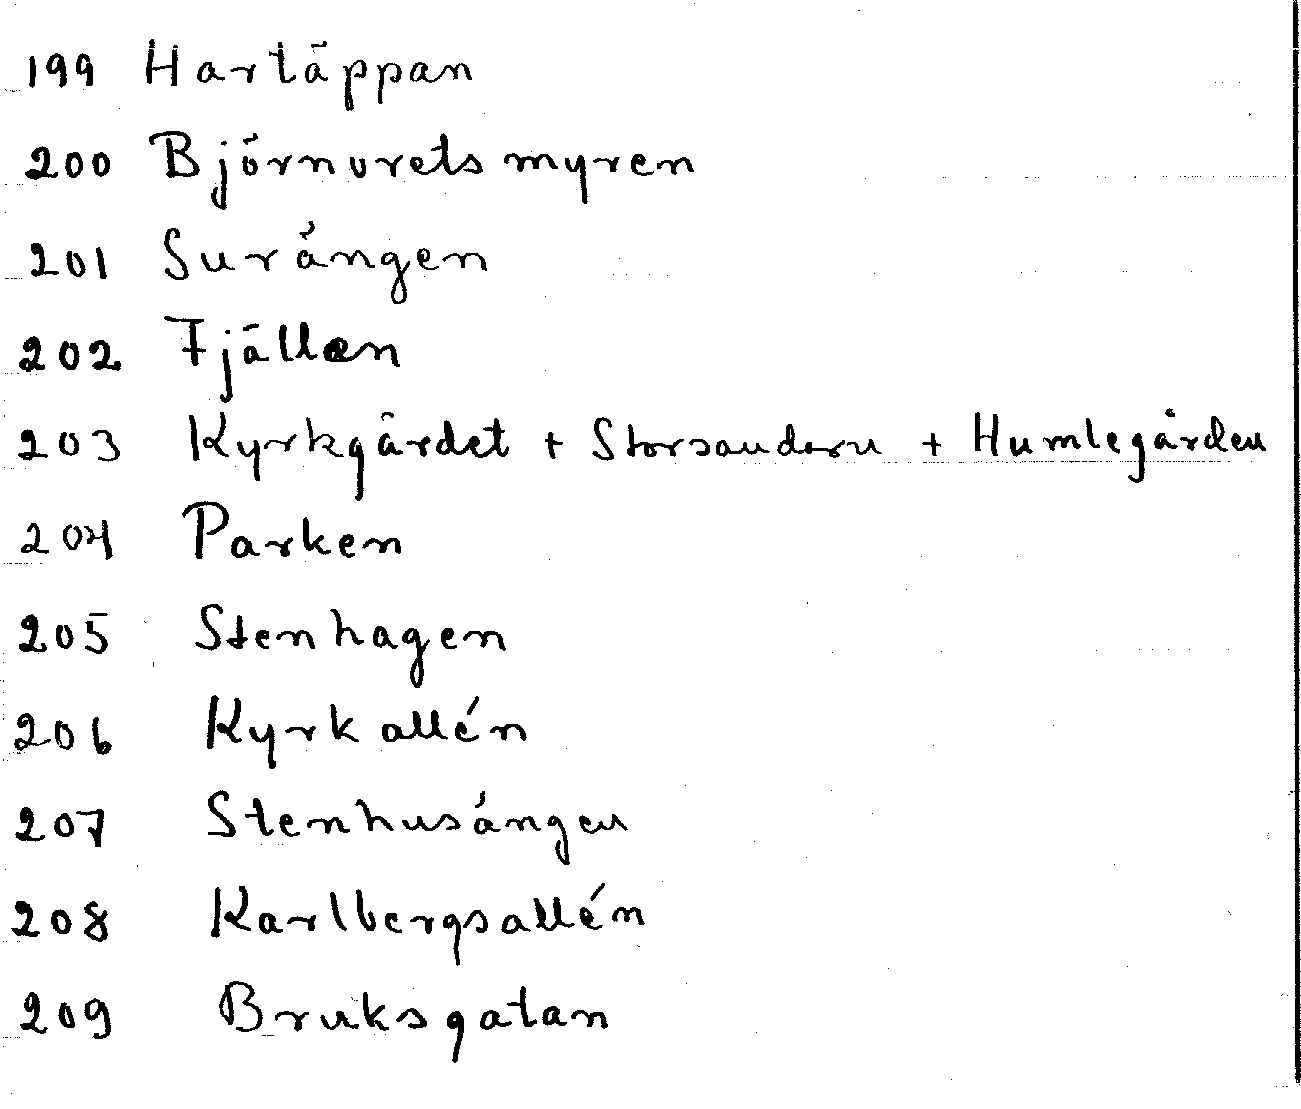 199 Hartäppan
200 Björnurets myren
201 Surängen
202 Fjällen
203 Kyrkgärdet + Storsandarn + Humlegården
204 Parken
205 Stenhagen
206 Kyrkallén
207 Stenhusängen
208 Karlbergsallén
209 Bruksgatan